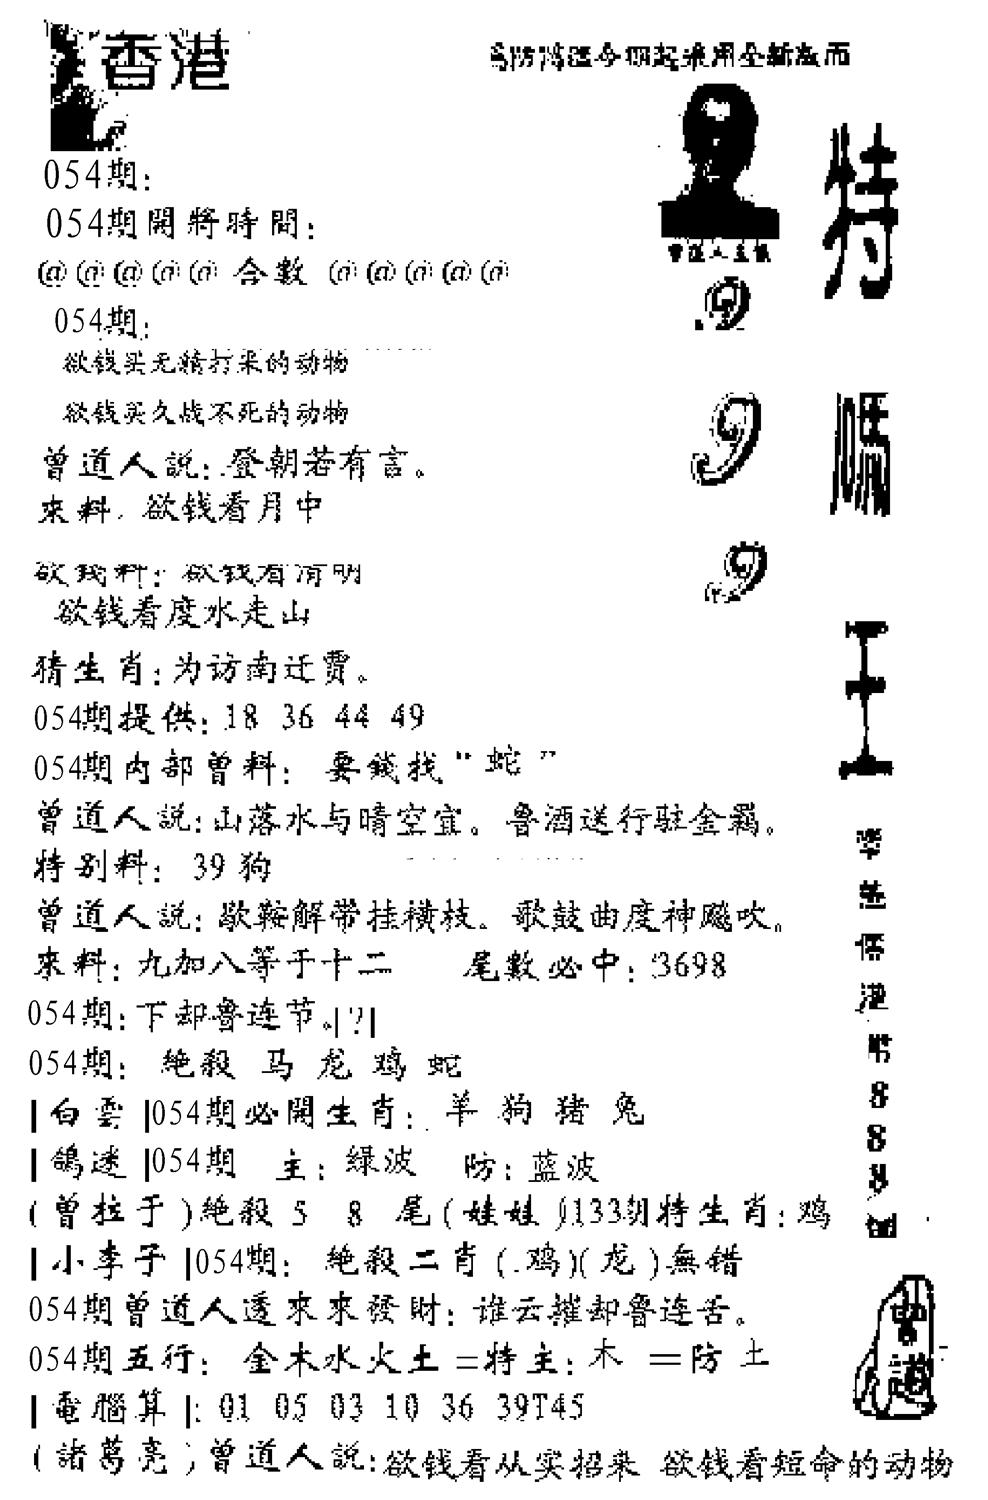 香港
防鴻運今期起采用全新版面
054期:
特
054期開將時間:
曾道人主
@@@@@ 合數 @@@@@
9
054期:
欲钱买无精打采的动物
9
碼
欲钱买久战不死的动物
曾道人説:登朝若有言。
來料 欲钱看月中
9
欲錢料: 欲钱看清明
欲钱看度水走山
王
猜生肖:为访南迁贾。
054期提供: 18 36 44 49
054期内部曾料: 要錢找"蛇"
曾道人説:山落水与晴空宜。鲁酒送行驻金羁。
特别料: 39 狗
港
曾道人説:歇鞍解带挂横枝。歌鼓曲度神飚吹。
來料:九加八等于十二 尾數必中:3698
054期:下却鲁连节。|?|
幣
054期: 絶殺 马 龙 鸡 蛇
8
|白雲|054期必開生肖: 羊 狗 猪 兔
8
|鴿迷|054期 主:绿波 防:蓝波
8
(曾拉于)絶殺 5 8 尾(娃娃)133期特生肖:鸡
|小李子|054期: 絶殺二肖(鸡)(龙)無错
054期曾道人透來來發財:谁云摧却鲁连舌。
曾道
054期五行: 金木水火土=特主:木 =防 土
|電腦算|: 01 05 03 10 36 39T45
(諸葛亮)曾道人説:欲钱看从实招来 欲钱看短命的动物